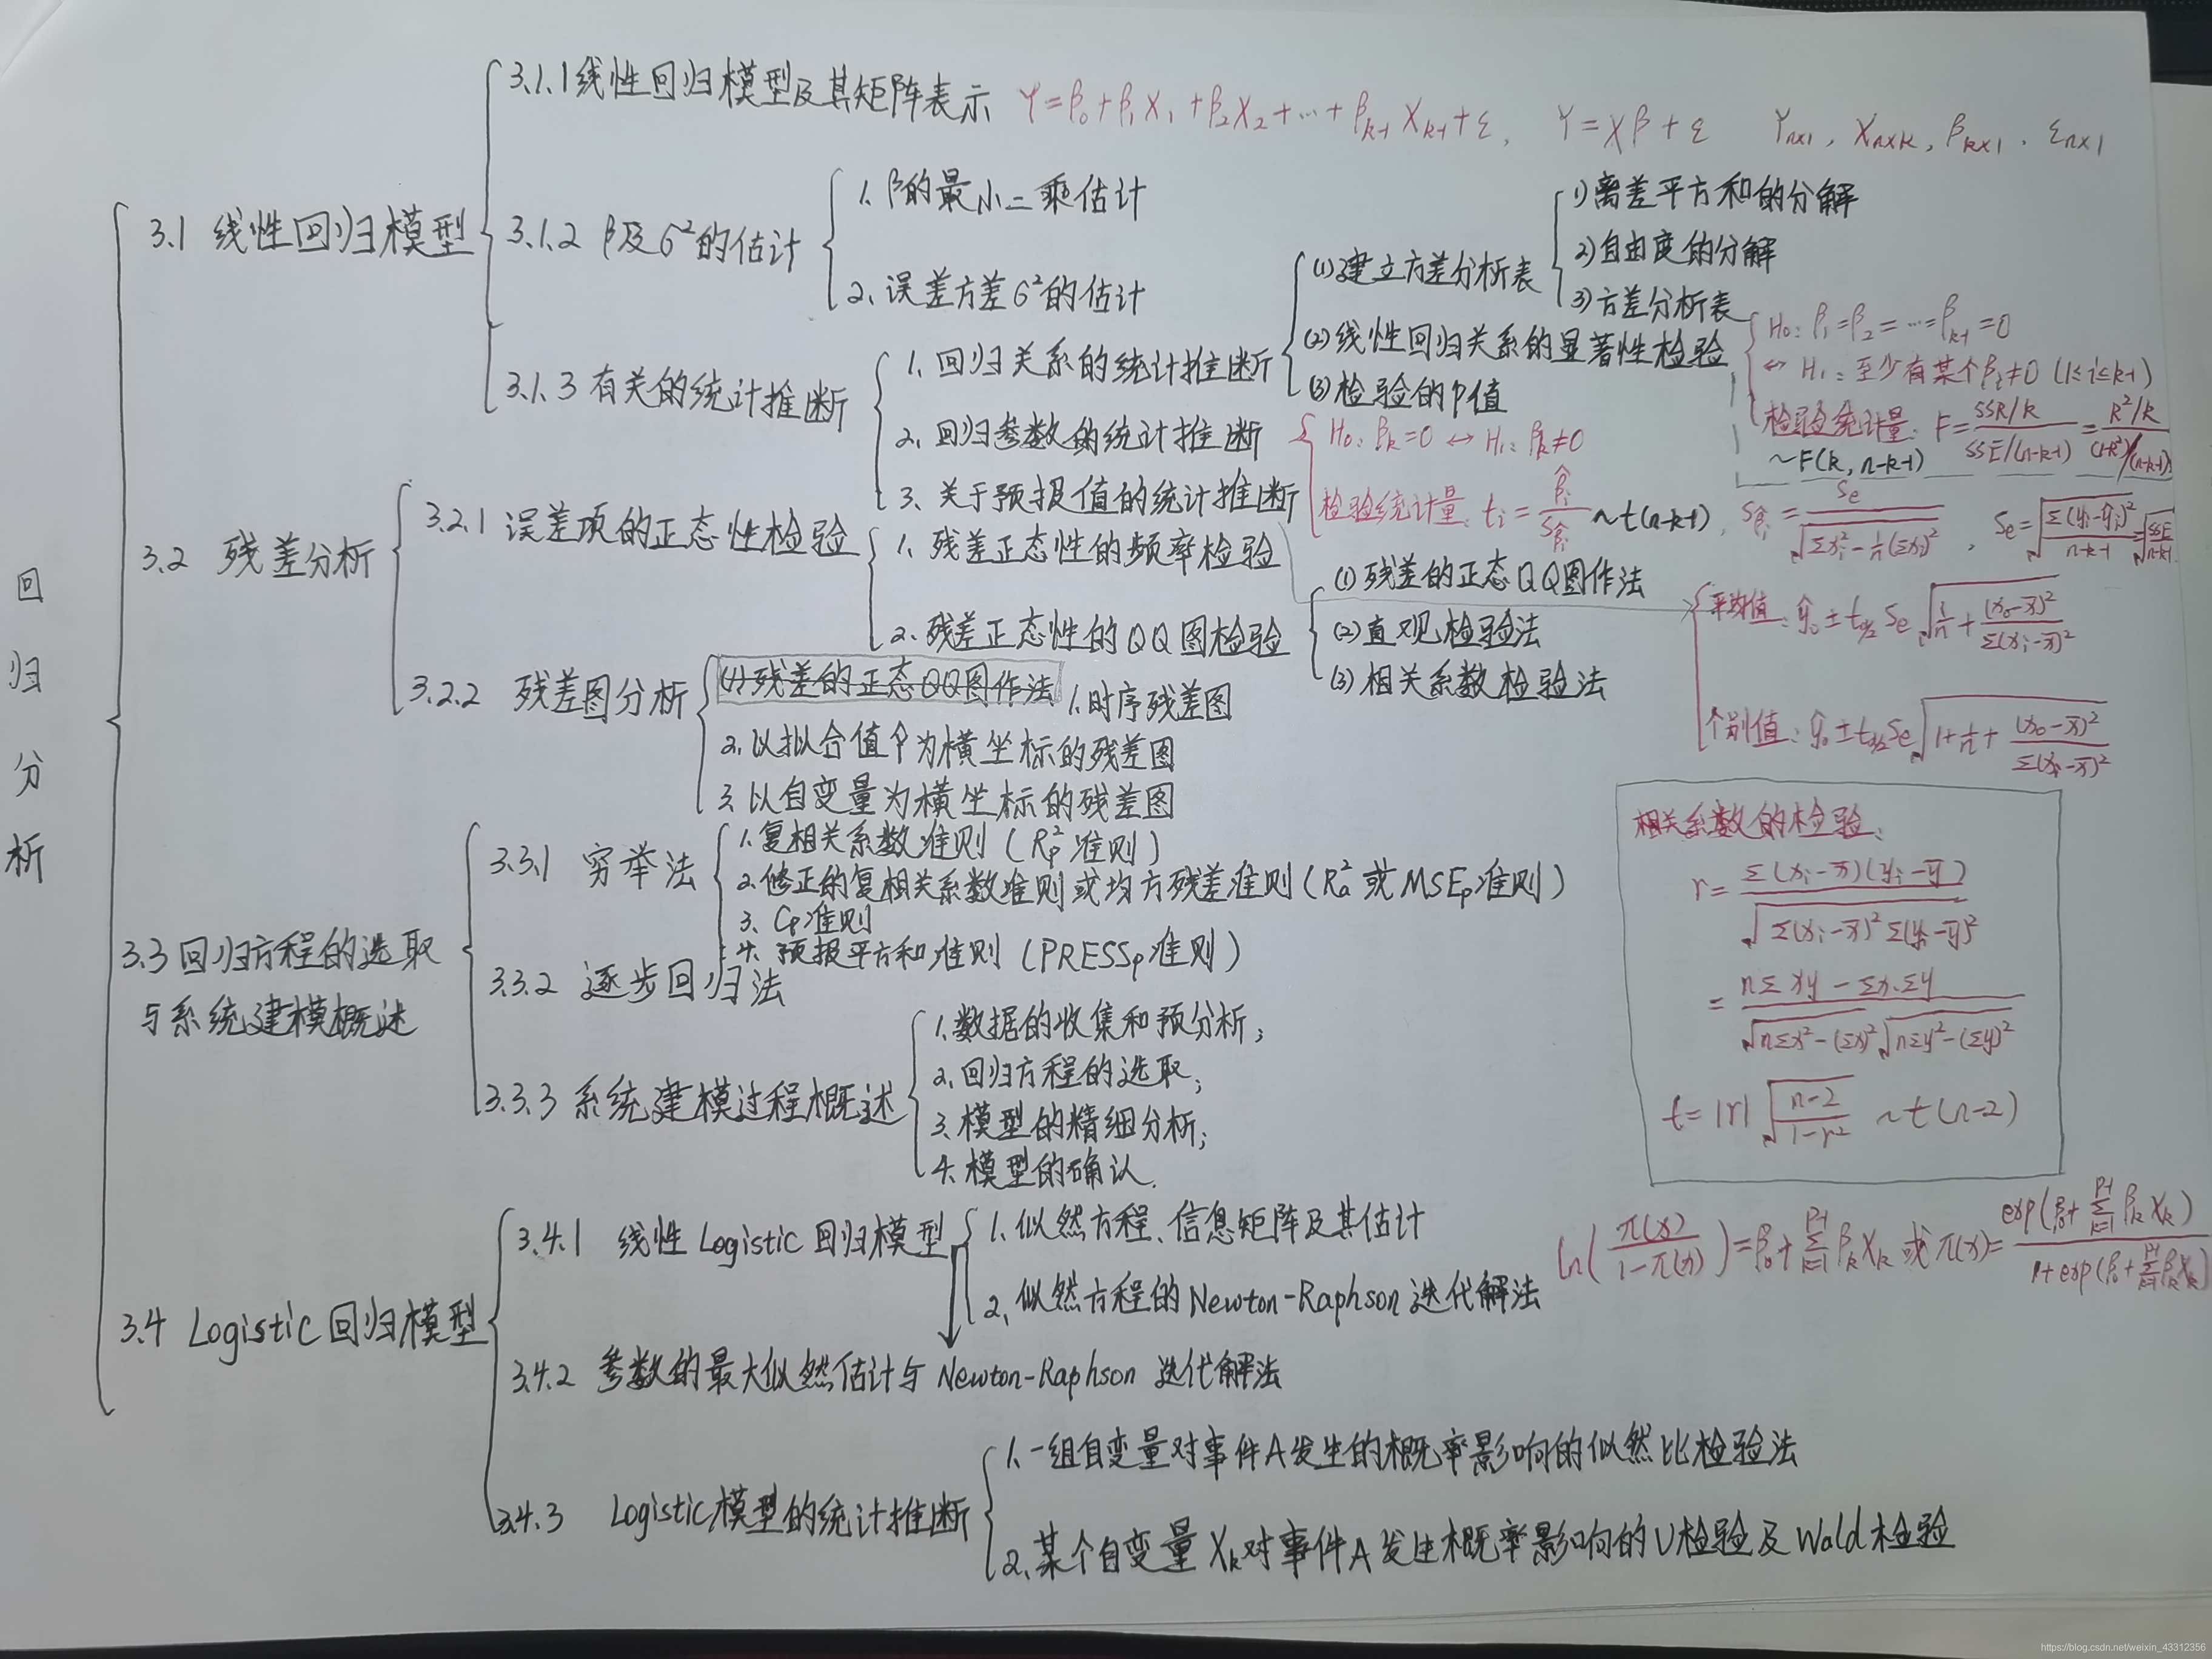 回归分析
3.1 线性回归模型
3.1.1 线性回归模型及其矩阵表示 Y=β₀+β₁X₁+β₂X₂+…+βₖ₋₁Xₖ₋₁+ε, Y=Xβ+ε Yₙₓ₁, Xₙₓₖ, βₖₓ₁, εₙₓ₁
3.1.2 β及σ²的估计
1. β的最小二乘估计
2. 误差方差σ²的估计
3.1.3 有关的统计推断
1. 回归关系的统计推断
(1) 建立方差分析表
1) 离差平方和的分解
2) 自由度的分解
3) 方差分析表
(2) 线性回归关系的显著性检验
H₀: β₁=β₂=…=βₖ₋₁=0
↔ H₁: 至少有某个βᵢ≠0 (1≤i≤k-1)
检验统计量: F=(SSR/k)/(SSE/(n-k-1))=(R²/k)/((1-R²)/(n-k-1))
~F(k, n-k-1)
(3) 检验的p值
2. 回归参数的统计推断
H₀: βₖ=0 ↔ H₁: βₖ≠0
检验统计量: tᵢ=β̂ᵢ/S_β̂ᵢ ~t(n-k-1), S_β̂ᵢ=Se/√(Σxᵢ²-1/n(Σxᵢ)²), Se=√(Σ(yᵢ-ŷᵢ)²/(n-k-1))=√(SSE/(n-k-1))
3. 关于预报值的统计推断
平均值: ŷ₀±t_α/2 Se√(1/n+(x₀-x̄)²/Σ(xᵢ-x̄)²)
个别值: ŷ₀±t_α/2 Se√(1+1/n+(x₀-x̄)²/Σ(xᵢ-x̄)²)
3.2 残差分析
3.2.1 误差项的正态性检验
1. 残差正态性的频率检验
2. 残差正态性的QQ图检验
(1) 残差的正态QQ图作法
(2) 直观检验法
(3) 相关系数检验法
3.2.2 残差图分析
(1) 残差的正态QQ图作法
1. 时序残差图
2. 以拟合值Ŷ为横坐标的残差图
3. 以自变量为横坐标的残差图
3.3 回归方程的选取
与系统建模概述
3.3.1 穷举法
1. 复相关系数准则 (Rₚ²准则)
2. 修正的复相关系数准则或均方残差准则 (Rₐ²或MSEₚ准则)
3. Cₚ准则
4. 预报平方和准则 (PRESSₚ准则)
3.3.2 逐步回归法
3.3.3 系统建模过程概述
1. 数据的收集和预分析;
2. 回归方程的选取;
3. 模型的精细分析;
4. 模型的确认.
相关系数的检验:
r=Σ(xᵢ-x̄)(yᵢ-ȳ)/√(Σ(xᵢ-x̄)²Σ(yᵢ-ȳ)²)
=(nΣxy-Σx·Σy)/(√(nΣx²-(Σx)²)√(nΣy²-(Σy)²))
t=|r|√((n-2)/(1-r²)) ~t(n-2)
3.4 Logistic回归模型
3.4.1 线性Logistic回归模型
1. 似然方程、信息矩阵及其估计
2. 似然方程的Newton-Raphson迭代解法
ln(π(x)/(1-π(x)))=β₀+Σₖ₌₁ᵖ⁻¹βₖXₖ 或 π(x)=exp(β₀+Σₖ₌₁ᵖ⁻¹βₖXₖ)/(1+exp(β₀+Σₖ₌₁ᵖ⁻¹βₖXₖ))
3.4.2 参数的最大似然估计与Newton-Raphson 迭代解法
3.4.3 Logistic模型的统计推断
1. 一组自变量对事件A发生的概率影响的似然比检验法
2. 某个自变量Xₖ对事件A发生概率影响的U检验及Wald检验
https://blog.csdn.net/weixin_43312356